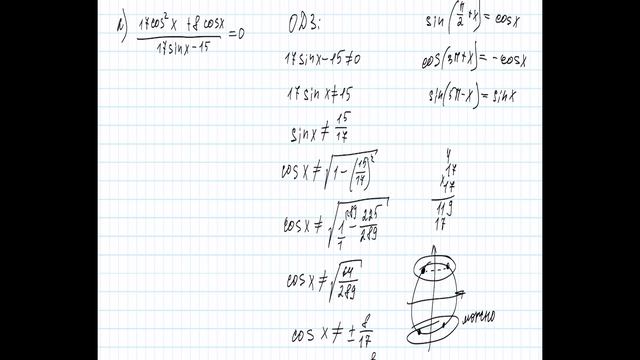 а) 17cos²x + 8cosx / 17sinx - 15 = 0
ОДЗ:
17sinx - 15 ≠ 0
17sinx ≠ 15
sinx ≠ 15/17
cosx ≠ √(1 - (15/17)²)
cosx ≠ √(1/1 ²⁸⁹ - 225/289)
cosx ≠ √(64/289)
cosx ≠ ± 8/17
8
sin(π/2 + x) = cosx
cos(3π + x) = -cosx
sin(5π - x) = sinx
4
17
x 17
119
17
можно